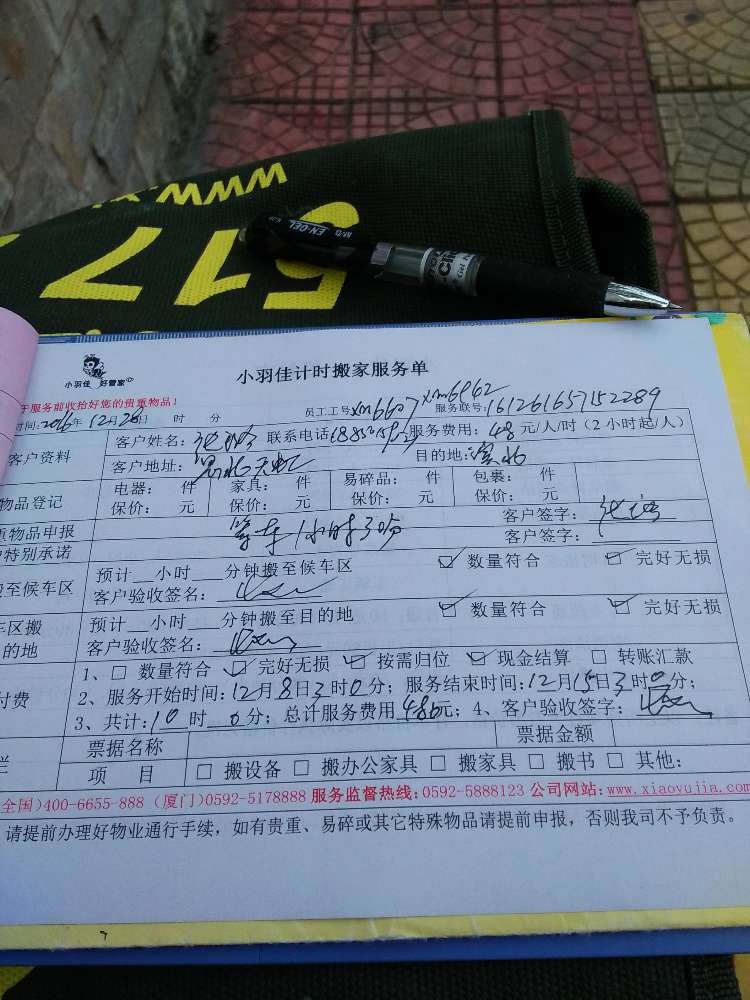 WWW.
517
M&G
EN-GEL
小羽佳 好管家
小羽佳计时搬家服务单
于服务前收拾好您的贵重物品！
员工工号xm6607 xm6962 服务联号:161261657152289
时间:2016年12月26日 时 分
客户资料
客户姓名： 联系电话 服务费用：48元/人/时（2小时起/人）
客户地址： 目的地:
物品登记
电器： 件 家具： 件 易碎品： 件 包裹： 件
保价： 元 保价： 元 保价： 元 保价： 元
重物品申报 客户签字：
特别承诺 等车1小时30分 客户签字：
搬至候车区
预计__小时___分钟搬至候车区 ☑ 数量符合 ☑ 完好无损
客户验收签名：
车区搬
的地
预计__小时___分钟搬至目的地 ☑ 数量符合 ☑ 完好无损
客户验收签名：
付费
1、□ 数量符合 ☑ 完好无损 ☑ 按需归位 ☑ 现金结算 □ 转账汇款
2、服务开始时间:12月8日3时0分；服务结束时间:12月15日3时0分；
3、共计:10时0分；总计服务费用480元；4、客户验收签字：
栏
票据名称 票据金额
项 目 □ 搬设备 □ 搬办公家具 □ 搬家具 □ 搬书 □ 其他:
全国)400-6655-888 (厦门)0592-5178888 服务监督热线:0592-5888123 公司网站:www.xiaoyujia.com
请提前办理好物业通行手续，如有贵重、易碎或其它特殊物品请提前申报，否则我司不予负责。